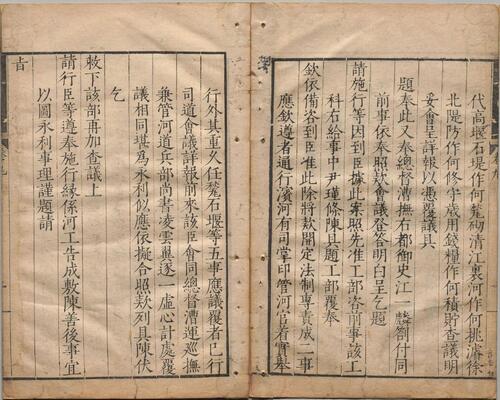 代高堰石堤作何甃砌清江裏河作何挑濬徐
北隄防作何修守歲用錢糧作何積貯查議明
妥會呈詳報以憑覆議具
題奉此又奉總督漕撫右都御史江一麟劄付同
前事依奉照款會議登答明白呈乞題
請施行等因到臣據此案照先准工部咨前事該工
科右給事中尹瑾條陳具題工部覆奉
欽依備咨到臣准此除將款開定法制專責成二事
應欽遵者通行濱河有司掌印管河官着實舉
行外其重久任甃石堰等五事應議覆者已行
司道會議詳報前來該臣會同總督漕運巡撫
兼管河道兵部尚書凌雲翼逐一虛心計處覆
議相同堪爲永利似應依擬合照款列具陳伏
乞
敕下該部再加查議上
請行臣等遵奉施行緣係河工告成敷陳善後事宜
以圖永利事理謹題請
旨